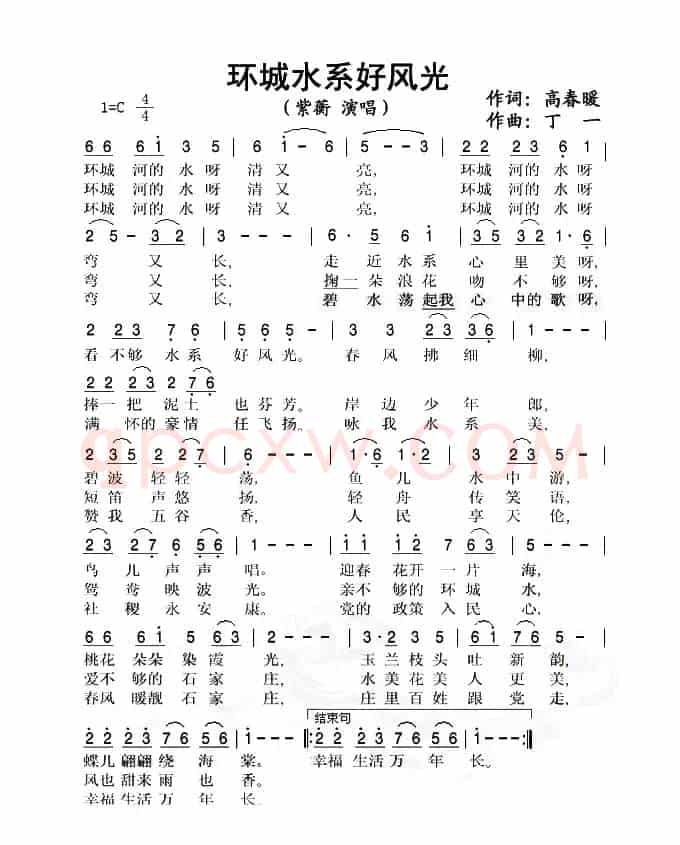 环城水系好风光
1=C 4/4
（紫蘅 演唱）
作词：高春暖
作曲：丁 一
66 6i 3 5 | 6 i - 6 | 5 - - 3 | 22 23 6 5 |
环城 河的 水 呀 清 又 亮， 环城 河的 水 呀
环城 河的 水 呀 清 又 亮， 环城 河的 水 呀
环城 河的 水 呀 清 又 亮， 环城 河的 水 呀
2 5 - 3 2 | 3 - - - | 6· 5 6 i | 3 2 3 2 | 1· 6
弯 又 长， 走 近 水 系 心 里 美 呀，
弯 又 长， 掬一 朵 浪 花 吻 不 够 呀，
弯 又 长， 碧 水 荡 起我 心 中的 歌 呀，
2 23 7 6 | 5 6 5 - | 3 3 23 36 |
看 不够 水 系 好 风 光。 春 风 拂 细 柳，
22 23 2 76
捧一 把 泥 土 也 芬 芳。 岸 边 少 年 郎，
满 怀的 豪 情 任 飞 扬。 咏 我 水 系 美，
qpcxw.COM
2 35 2 27 | 6 - - - | 1·6 12 | 3 23 5 - |
碧 波 轻 轻 荡， 鱼 儿 水 中 游，
短 笛 声 悠 扬， 轻 舟 传 笑 语，
赞 我 五 谷 香， 人 民 享 天 伦，
23 27 6 56 | 1 - - - | ii i2 6 6 | 5 3 5 - |
鸟 儿 声 声 唱。 迎春 花开 一 片 海，
鸳 鸯 映 波 光。 亲不 够的 环 城 水，
社 稷 永 安 康。 党的 政策 入 民 心，
66 6i 5 63 | 2 - - - | 3·2 3 5 | 6 i 6 - |
桃花 朵朵 染 霞 光， 玉 兰 枝头 吐 新 韵，
爱不 够的 石 家 庄， 水 美 花美 人 更 美，
春风 暖靓 石 家 庄， 庄 里 百姓 跟 党 走，
结束句
22 22 2 76 56 | 1 - - - :| 22 22 2 76 56 | 1 - - - :|
蝶儿 翩翩 绕 海 棠。 幸福 生活 万 年 长。
风也 甜来 雨 也 香。
幸福 生活 万 年 长。